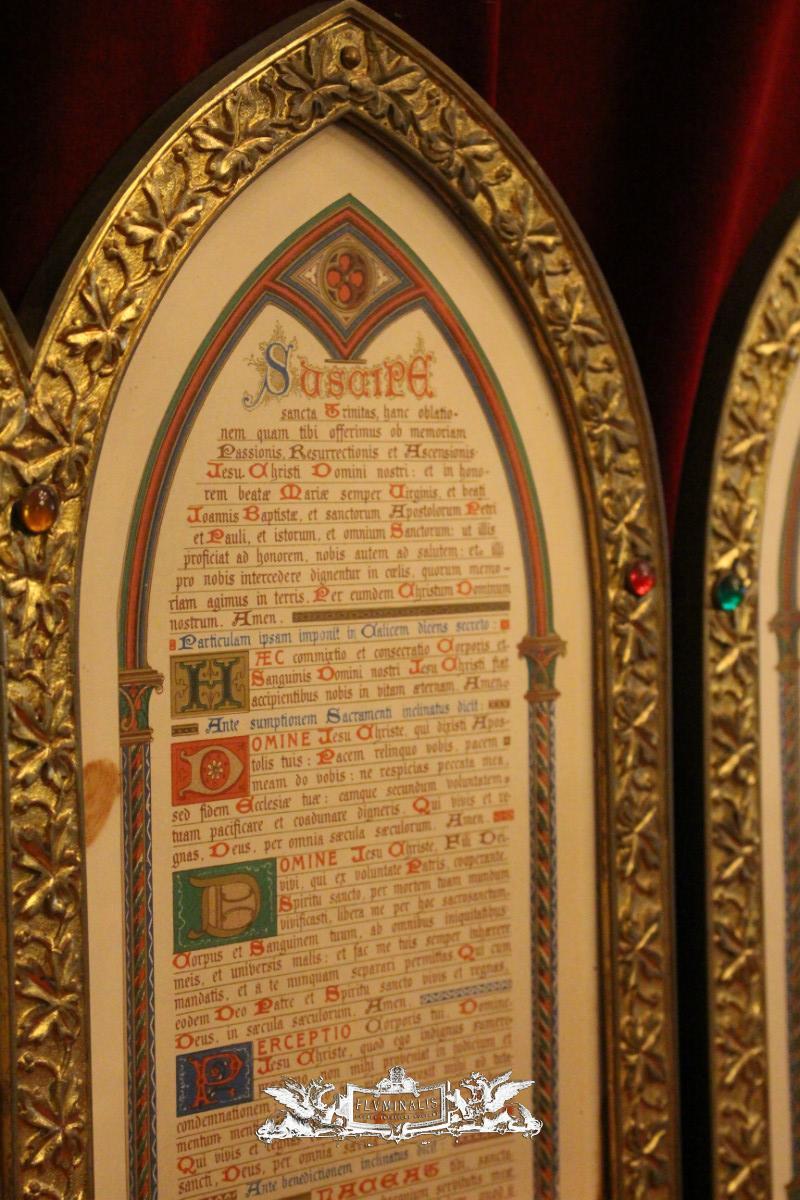 Suscipe
sancta Trinitas, hanc oblatio-
nem quam tibi offerimus ob memoriam
Passionis, Resurrectionis et Ascensionis
Jesu Christi Domini nostri: et in hono-
rem beatæ Mariæ semper Virginis, et beati
Joannis Baptistæ, et sanctorum Apostolorum Petri
et Pauli, et istorum, et omnium Sanctorum: ut illis
proficiat ad honorem, nobis autem ad salutem: et illi
pro nobis intercedere dignentur in cœlis, quorum memo-
riam agimus in terris. Per eumdem Christum Dominum
nostrum. Amen.
Particulam ipsam imponit in Calicem dicens secreto:
HÆC commixtio et consecratio Corporis et
Sanguinis Domini nostri Jesu Christi fiat
accipientibus nobis in vitam æternam. Amen.
Ante sumptionem Sacramenti inclinatus dicit:
DOMINE Jesu Christe, qui dixisti Apos-
tolis tuis: Pacem relinquo vobis, pacem
meam do vobis: ne respicias peccata mea,
sed fidem Ecclesiæ tuæ: eamque secundum voluntatem
tuam pacificare et coadunare digneris. Qui vivis et re-
gnas, Deus, per omnia sæcula sæculorum. Amen.
DOMINE Jesu Christe, Fili Dei
vivi, qui ex voluntate Patris, cooperante
Spiritu sancto, per mortem tuam mundum
vivificasti, libera me per hoc sacrosanctum
Corpus et Sanguinem tuum, ab omnibus iniquitatibus
meis, et universis malis: et fac me tuis semper inhærere
mandatis, et a te nunquam separari permittas Qui cum
eodem Deo Patre et Spiritu sancto vivis et regnas,
Deus, in sæcula sæculorum. Amen.
PERCEPTIO Corporis tui, Domine
Jesu Christe, quod ego indignus sumere
non mihi proveniat in judicium et
condemnationem
mentum
Qui vivis et
sancti, Deus, per omnia
Ante benedictionem inclinatus dicit
PLACEAT tibi, sancta
FLVMINALIS